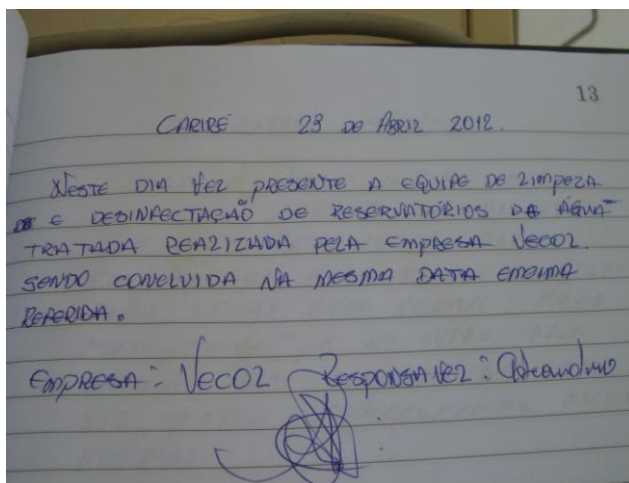 13
CARIRÉ 23 DE ABRIL 2012.
NESTE DIA FEZ PRESENTE A EQUIPE DE LIMPEZA
E DESINFECTAÇÃO DE RESERVATÓRIOS DE ÁGUA
TRATADA REALIZADA PELA EMPRESA VECOL.
SENDO CONCLUIDA NA MESMA DATA
REFERIDA.
EMPRESA: VECOL RESPONSAVEL: